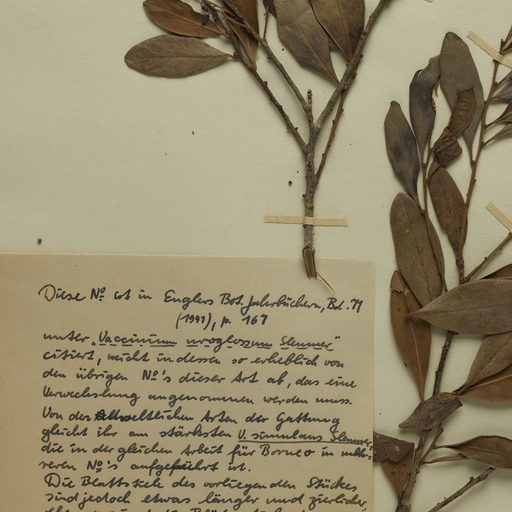 Diese No ist in Englers Bot. Jahrbüchern, Bd. 71
(1941), p. 167
unter „Vaccinium uroglossum Sleumer"
citiert, weicht indessen so erheblich von
den übrigen No's dieser Art ab, das eine
Verwechslung angenommen werden muss.
Von den altweltlichen Arten der Gattung
gleicht ihr am stärksten V. simulans Sleumer,
die in der gleichen Arbeit für Borneo in meh-
reren No's aufgeführt ist.
Die Blattstiele des vorliegenden Stückes
sind jedoch etwas länger und zierlicher,